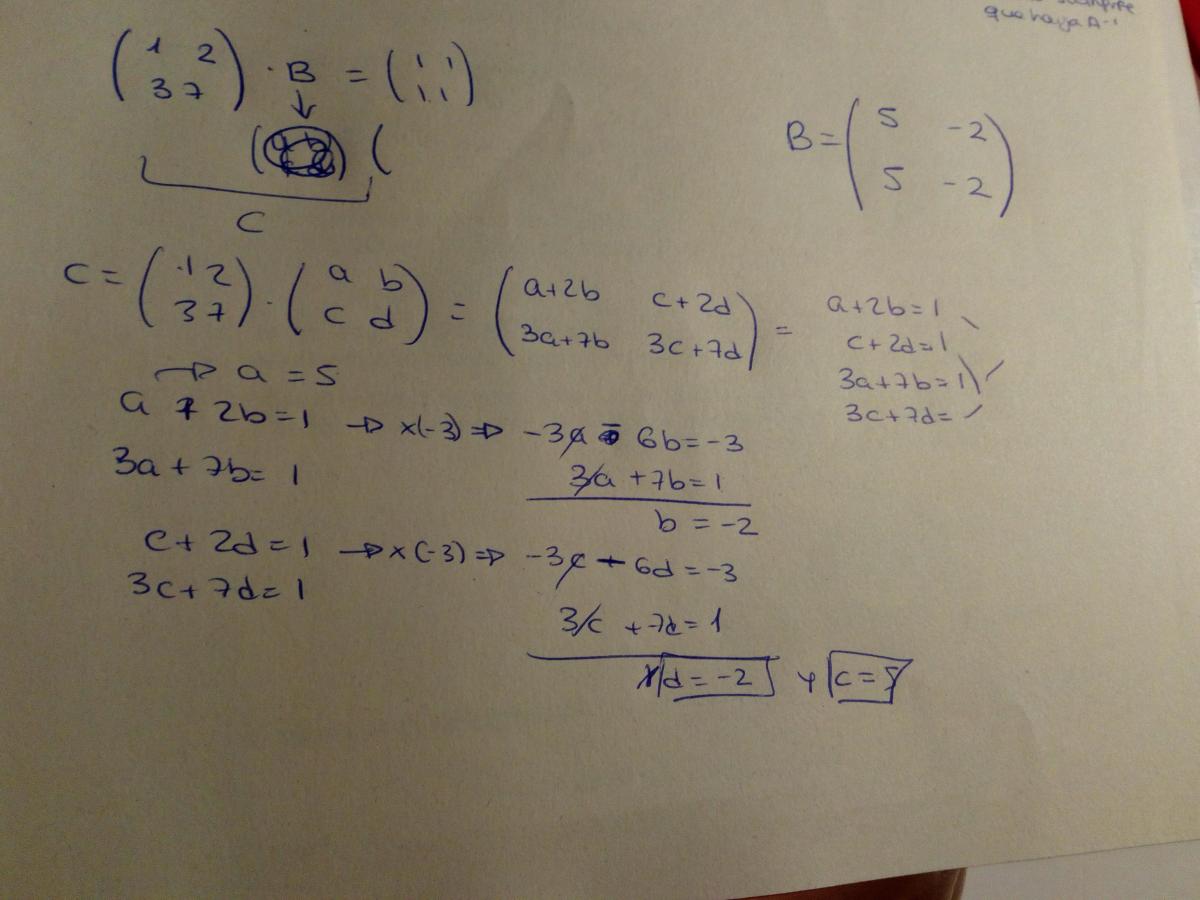 que haya A-1
(1 2
3 7) · B = (1 1
1 1)
B = (5 -2
5 -2)
C
C = (1 2
3 7) · (a b
c d) = (a+2b c+2d
3a+7b 3c+7d) =
a+2b=1
c+2d=1
3a+7b=1
3c+7d=
→ a = 5
a + 2b=1 → x(-3) ⇒ -3a - 6b=-3
3a + 7b= 1 3a +7b=1
b = -2
c + 2d = 1 → x(-3) ⇒ -3c - 6d=-3
3c + 7d= 1 3c +7d= 1
d = -2 y c = 5